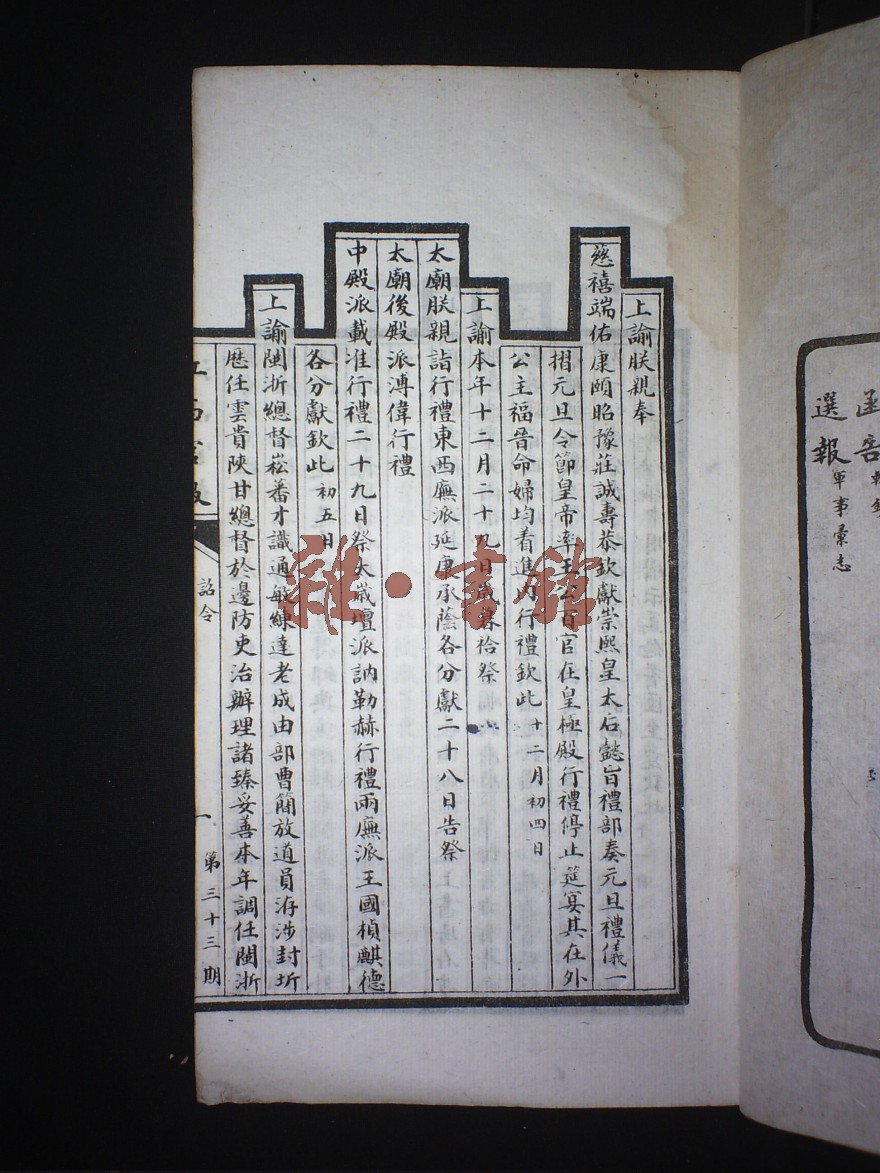 上諭朕親奉
慈禧端佑康頤昭豫莊誠壽恭欽獻崇熙皇太后懿旨禮部奏元旦禮儀一
摺元旦令節皇帝率王公百官在皇極殿行禮停止筵宴其在外
公主福晉命婦均着進內行禮欽此十二月初四日
上諭本年十二月二十九日歲暮祫祭
太廟朕親詣行禮東西廡派延庚承蔭各分獻二十八日告祭
太廟後殿派溥偉行禮
中殿派載准行禮二十九日祭太歲壇派訥勒赫行禮兩廡派王國楨麒德
各分獻欽此初五日
上諭閩浙總督崧蕃才識通敏練達老成由部曹簡放道員洊涉封圻
歷任雲貴陝甘總督於邊防吏治辦理諸臻妥善本年調任閩浙
江西官報
詔令
一
第三十三期
函告
選報 軍事彙志
雜·書館